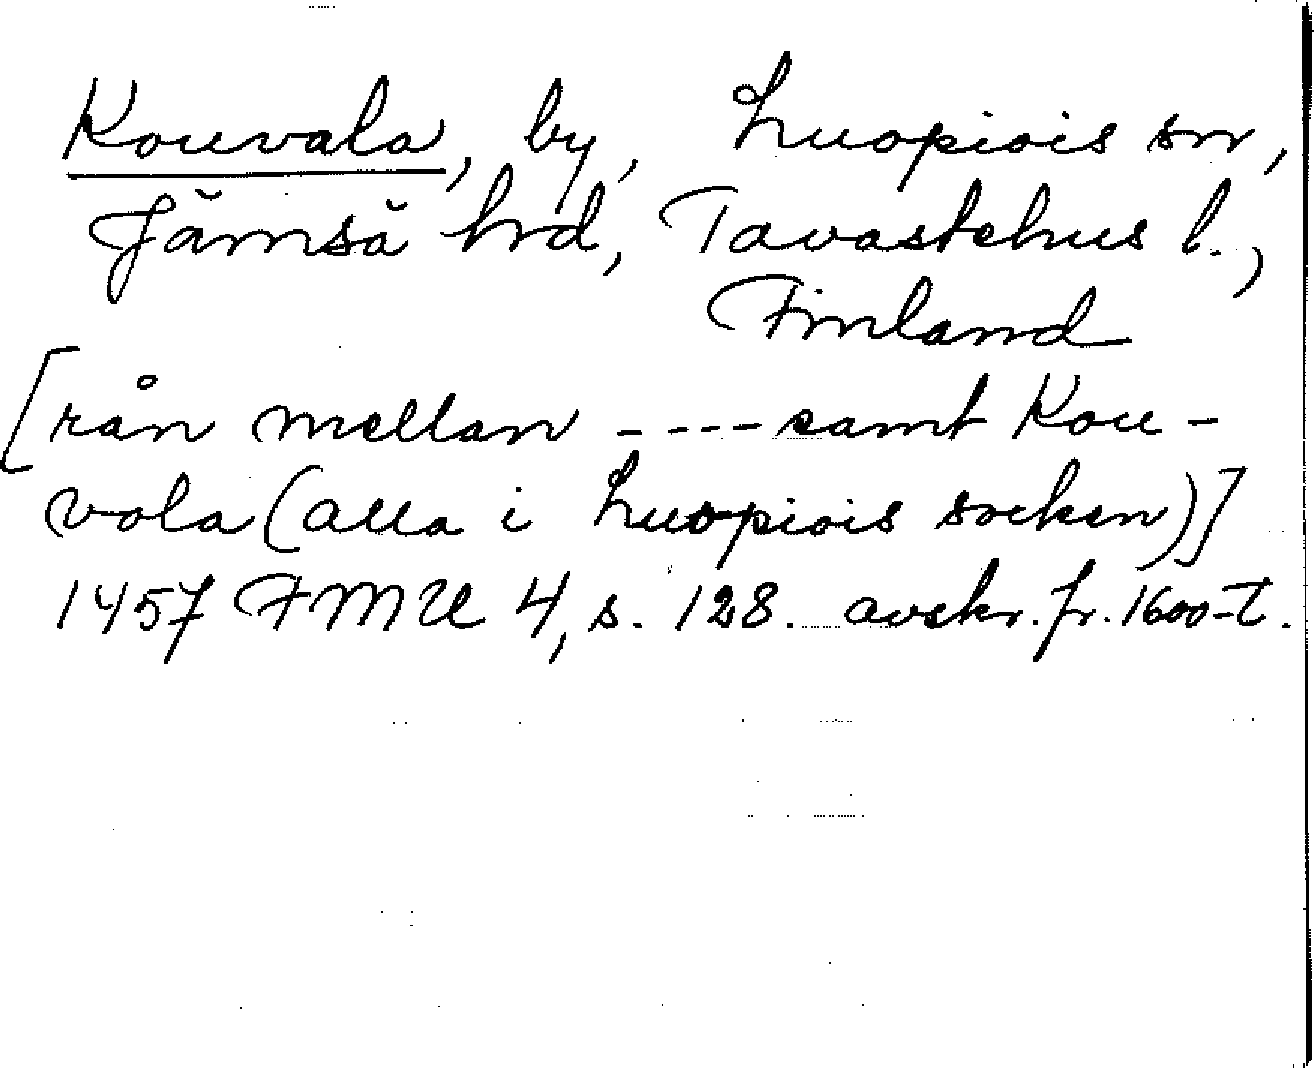 Kouvala, by, Luopiois sn,
Jämsä hrd, Tavastehus l.,
Finland
[rån mellan ---- samt Kou-
vola (alla i Luopiois socken)]
1457 FMU 4, s. 128. avskr. fr. 1600-t.